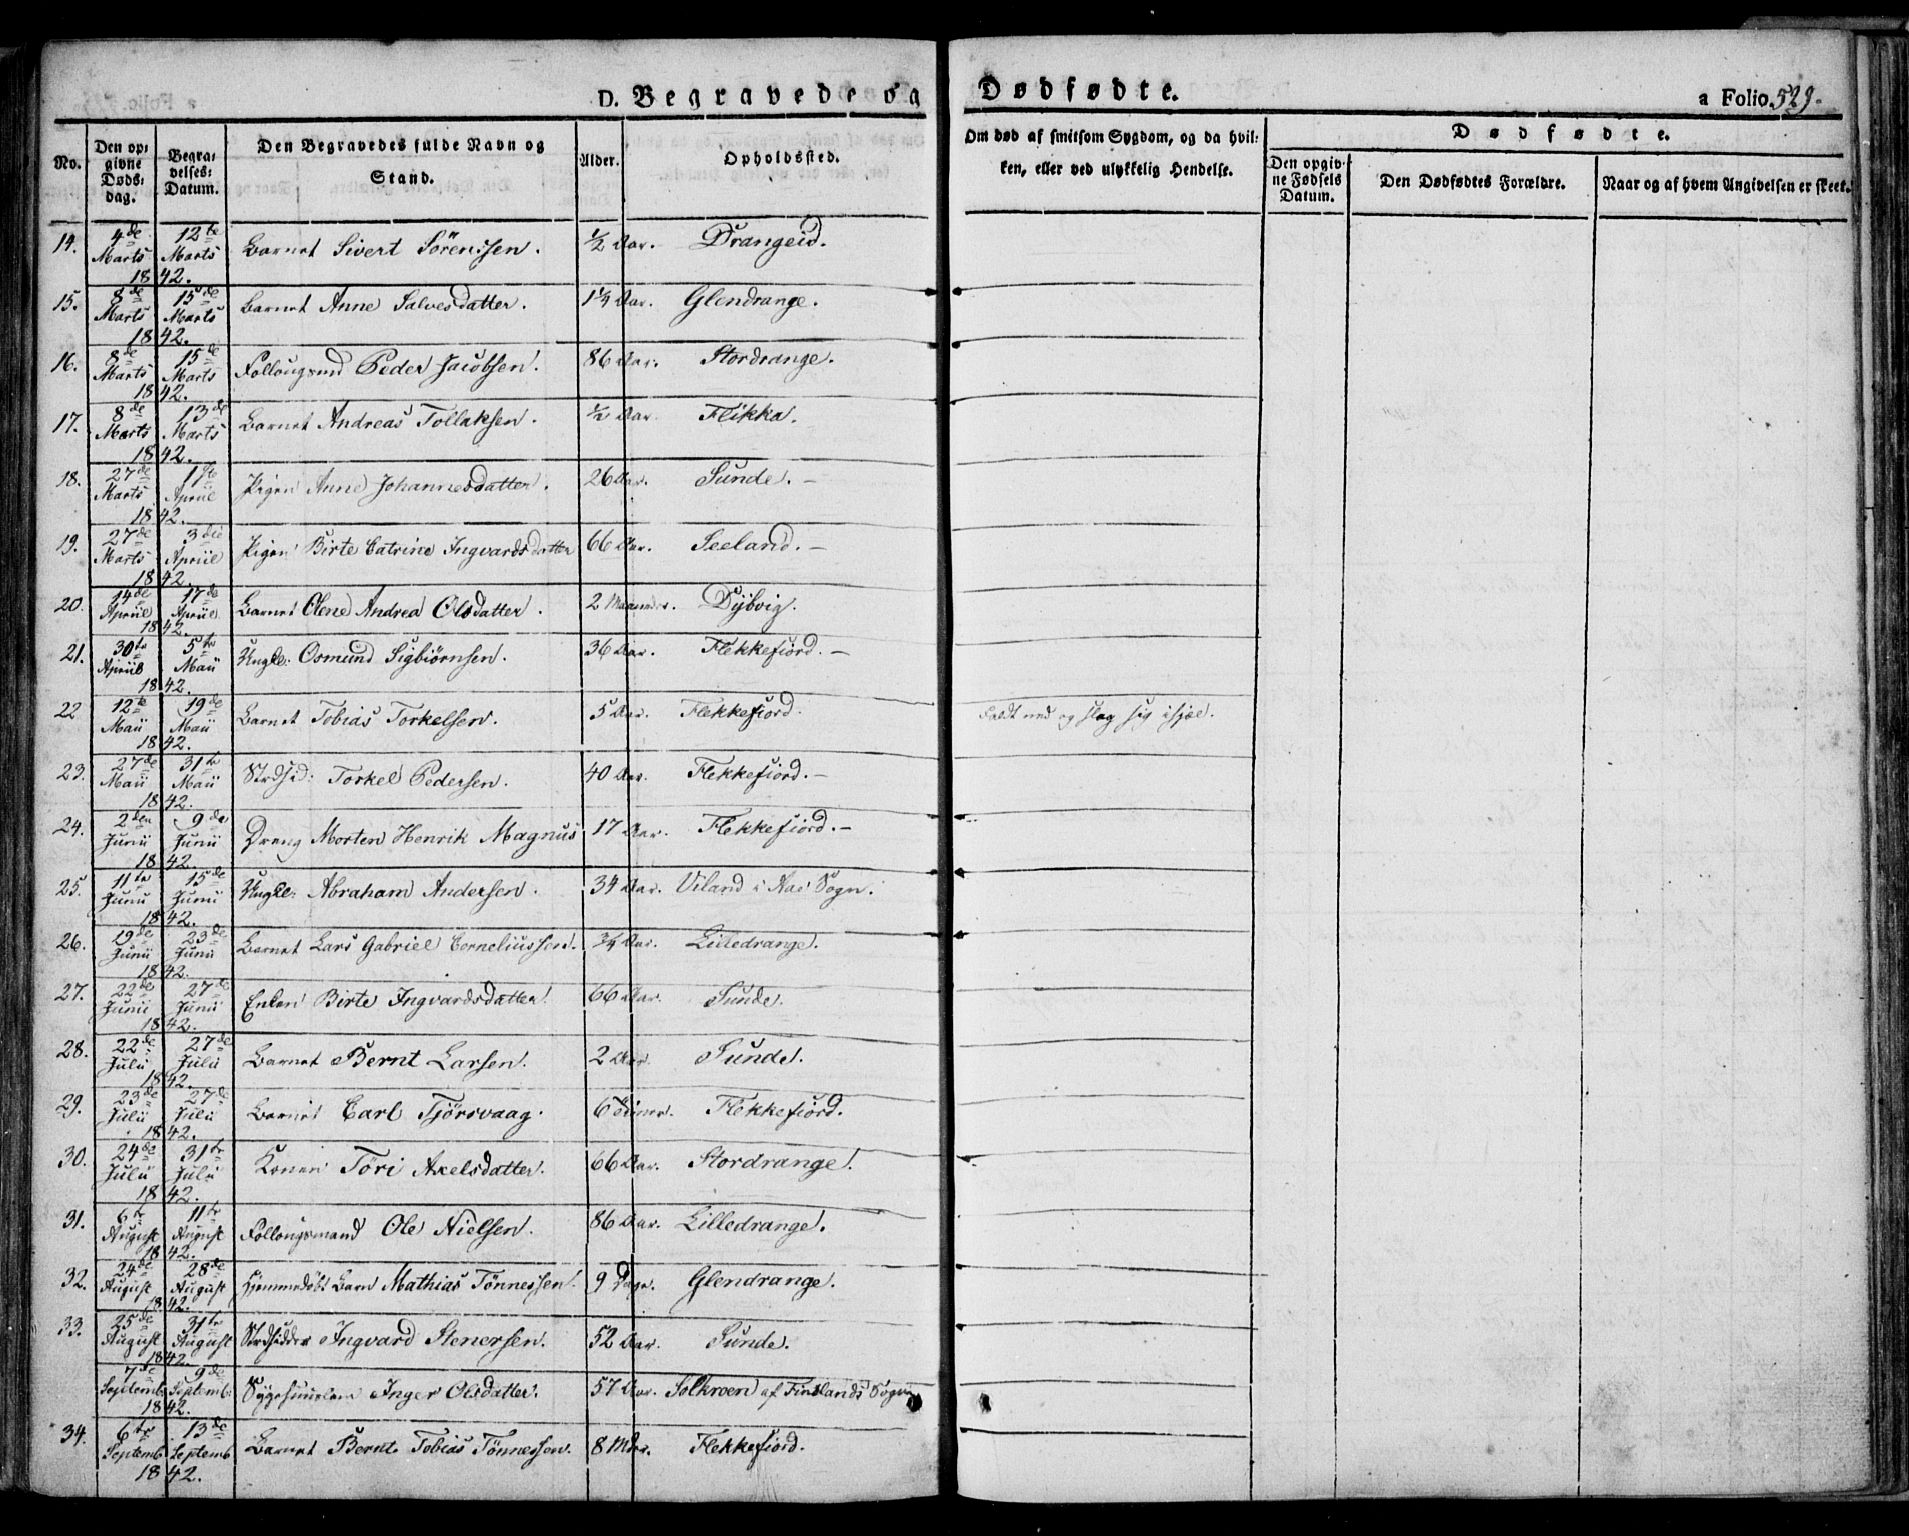 D. Begravede og Dødfødte.
a Folio 529.
No.
Den op-
givne
Døds-
dag.
Begra-
velses-
Datum.
Den Begravedes fulde Navn og
Stand.
Alder.
Opholdssted.
Om død af smitsom Sygdom, og da hvil-
ken, eller ved ulykkelig Hendelse.
Dødfødte.
Den opgiv-
ne Fødsels
Datum.
Den Dødfødtes Forældre.
Naar og af hvem Angivelsen er skeet.
14. 4de Marts 12te Marts 1842. Barnet Sivert Sörenssen. ½ Aar. Drangeid.
15. 8de Marts 15de Marts 1842. Barnet Anne Salvesdatter. 1¼ Aar. Glendrange.
16. 8de Marts 15de Marts 1842. Follougsmd Peder Jacobsen. 86 Aar. Stordrange.
17. 8de Marts 13de Marts 1842. Barnet Andreas Tollaksen. ½ Aar. Flikka.
18. 27de Marts 1ste Apriil 1842. Pigen Anne Johannesdatter. 26 Aar. Sunde. –
19. 27de Marts 3die Apriil 1842. Pigen Birte Catrine Ingvardsdatter 66 Aar. Seeland. –
20. 14de Apriil 17de Apriil 1842. Barnet Olene Andrea Olsdatter. 2 Maaneder. Dybvig.
21. 30te Apriil 5te Maii 1842. Ungkl: Osmund Sigbiörnsen. 36 Aar. Flekkefiörd. –
22 12te Maii 19de Maii 1842. Barnet Tobias Torkelsen. 5 Aar. Flekkefiord. Faldt ned og slog sig ihjæl.
23. 27de Maii 31te Maii 1842. Strdsid: Torkel Pedersen. 40 Aar. Flekkefiord. –
24. 2den Junii 9de Junii 1842. Dreng Morten Henrik Magnus 17 Aar. Flekkefiörd. –
25. 11te Junii 15de Junii 1842. Ungkl: Abraham Andersen. 34 Aar. Viland i Aae Sogn.
26. 19de Junii 23de Junii 1842. Barnet Lars Gabriel Corneliussen. ¾ Aar. Lilledrange.
27. 22de Junii 27de Junii 1842. Enken Birte Ingvardsdatter. 66 Aar. Sunde.
28. 22de Julii 27de Julii 1842. Barnet Bernt Larsen. 2 Aar. Sunde.
29. 23de Julii 27de Julii 1842. Barnet Carl Tjörsvaag. 6 Timer. Flekkefiörd.
30. 24de Julii 31te Julii 1842. Konen Töri Axelsdatter. 66 Aar. Stordrange.
31. 6te August 11te August 1842. Follougsmand Ole Nielsen. 86 Aar. Lilledrange.
32. 24de August 28de August 1842. Hjemmedøbt Barn Mathias Tönnessen. 9 Dage. Glendrange.
33. 25de August 31te August 1842. Strdsidder Ingvard Stenersen. 52 Aar. Sunde.
7de Septemb. 9de Septemb: 1842. Inger Olsdatter. 57 Aar. Solkroen af Finslands Sogn
34. 6te Septemb. 13de Septemb 1842. Barnet Bernt Tobias Tönnessen. 8 Mdr. Flekkefiord.